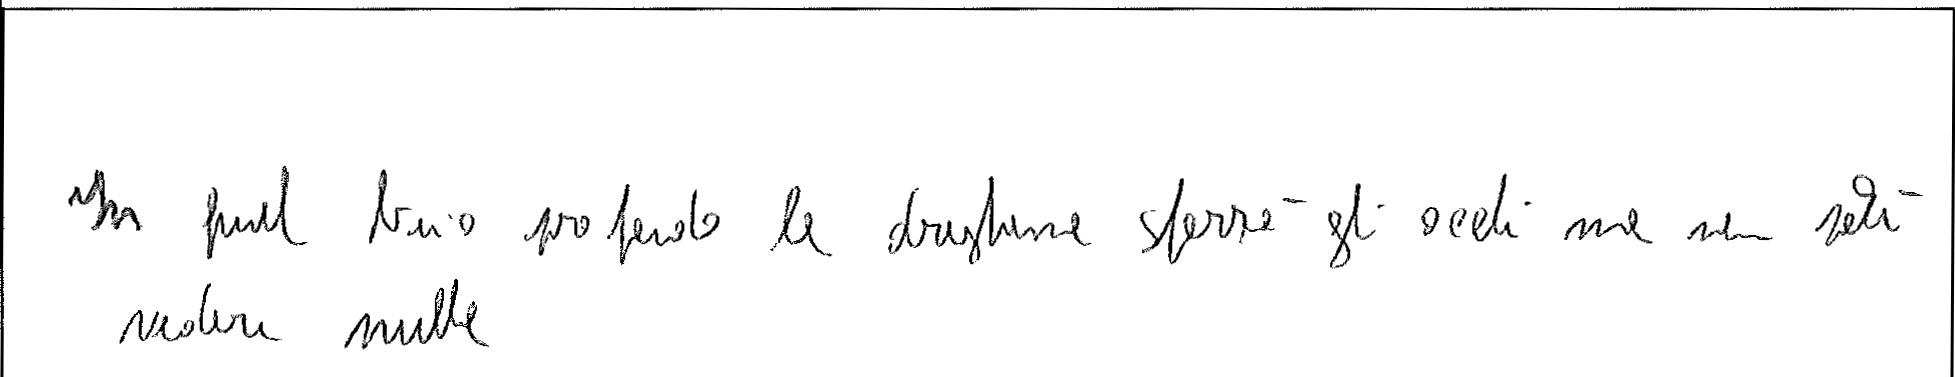 In quel buio profondo la draghessa sferrò gli occhi ma non potè
vedere nulla